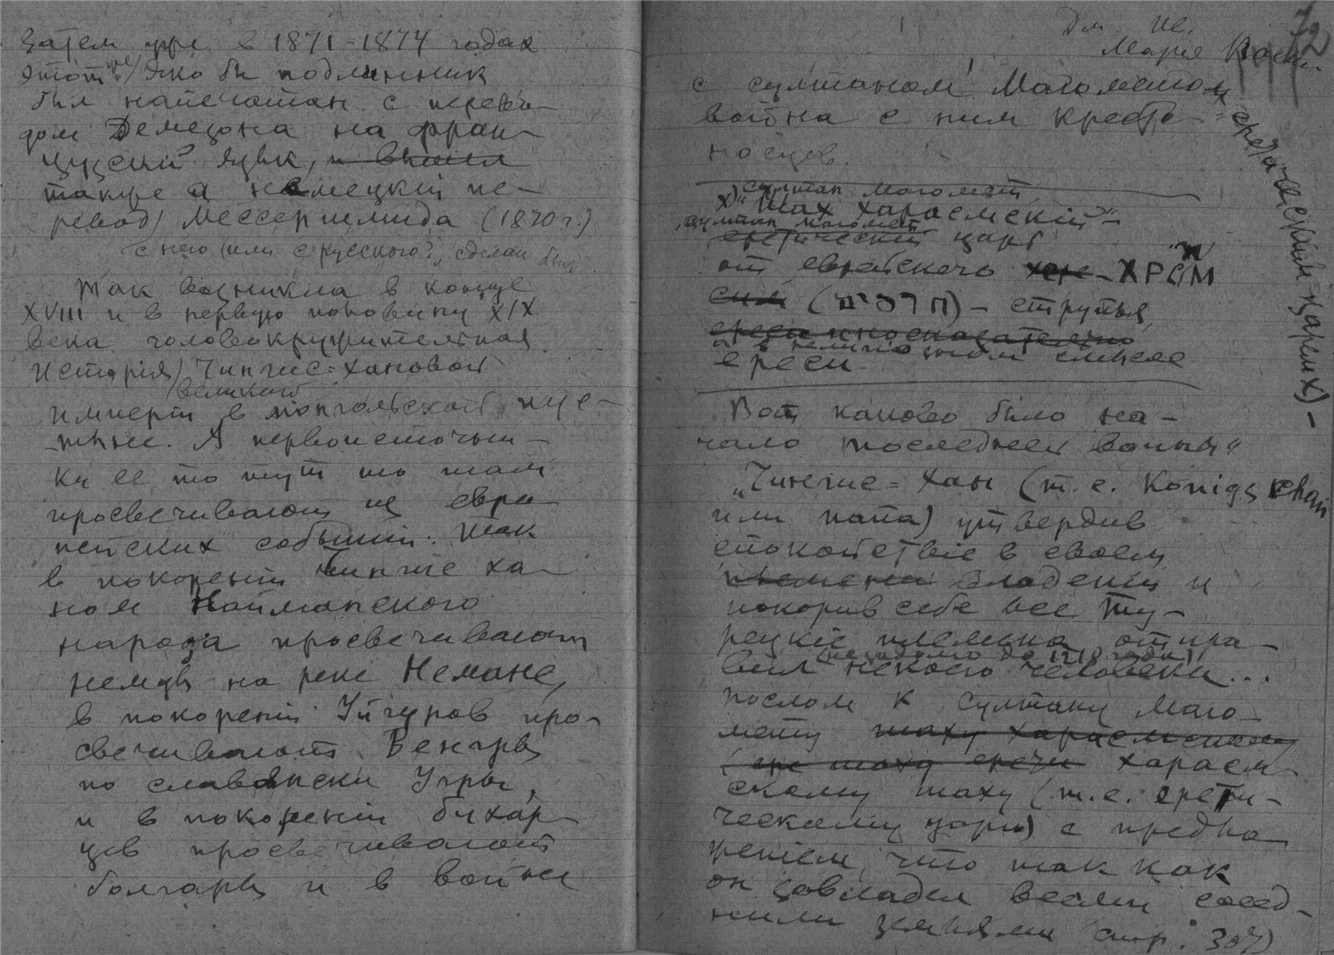 Затем уже в 1871-1874 годах
этот же якобы подлинник
был напечатан с перево-
дом Демезона на фран-
цузский язык, и вышел
также и немецкий пе-
ревод Мессершмида (1820 г.)
с него (или с русского?) сделан был
Так возникла в конце
XVIII и в первую половину XIX
века головокружительная
история Чингис-Хановой
великой
империи в монгольской пус-
тыне. А первоисточни-
ки ее то тут то там
просвечивают из евро-
пейских событий. Так
в покорении Чингис ха-
ном Найманского
народа просвечивают
немцы на реке Немане,
в покорении Уйгуров про-
свечивают Венгры
по славянски Угры,
и в покорении бухар-
цев просвечивают
болгары и в войне
72
Дм. Ив.
Марья
с султаном Магометом
"еретическим царем X)-
война с ним кресто-
носцев.
султан магомет
X) "Шах Хараемский" -
султан магомет
еретический царь
от еврейского - ХРСИМ
(חרסים) - струпья
а в религиозном смысле
ереси.
Вот каково было на-
чало последней войны
"Чингис-Хан (т.е. Königs chan
или папа) утвердив
спокойствие в своем
племени владении и
покорив себе все Ту-
рецкие племена отпра-
(незадолго до 1218 года)
вил некоего человека...
послом к султану Маго-
мету шаху хараемскому
хараем-
скому шаху (т.е. ерети-
ческому царю) с предло-
жением, что так как
он завладел всеми сосед-
ними землями (стр. 307)